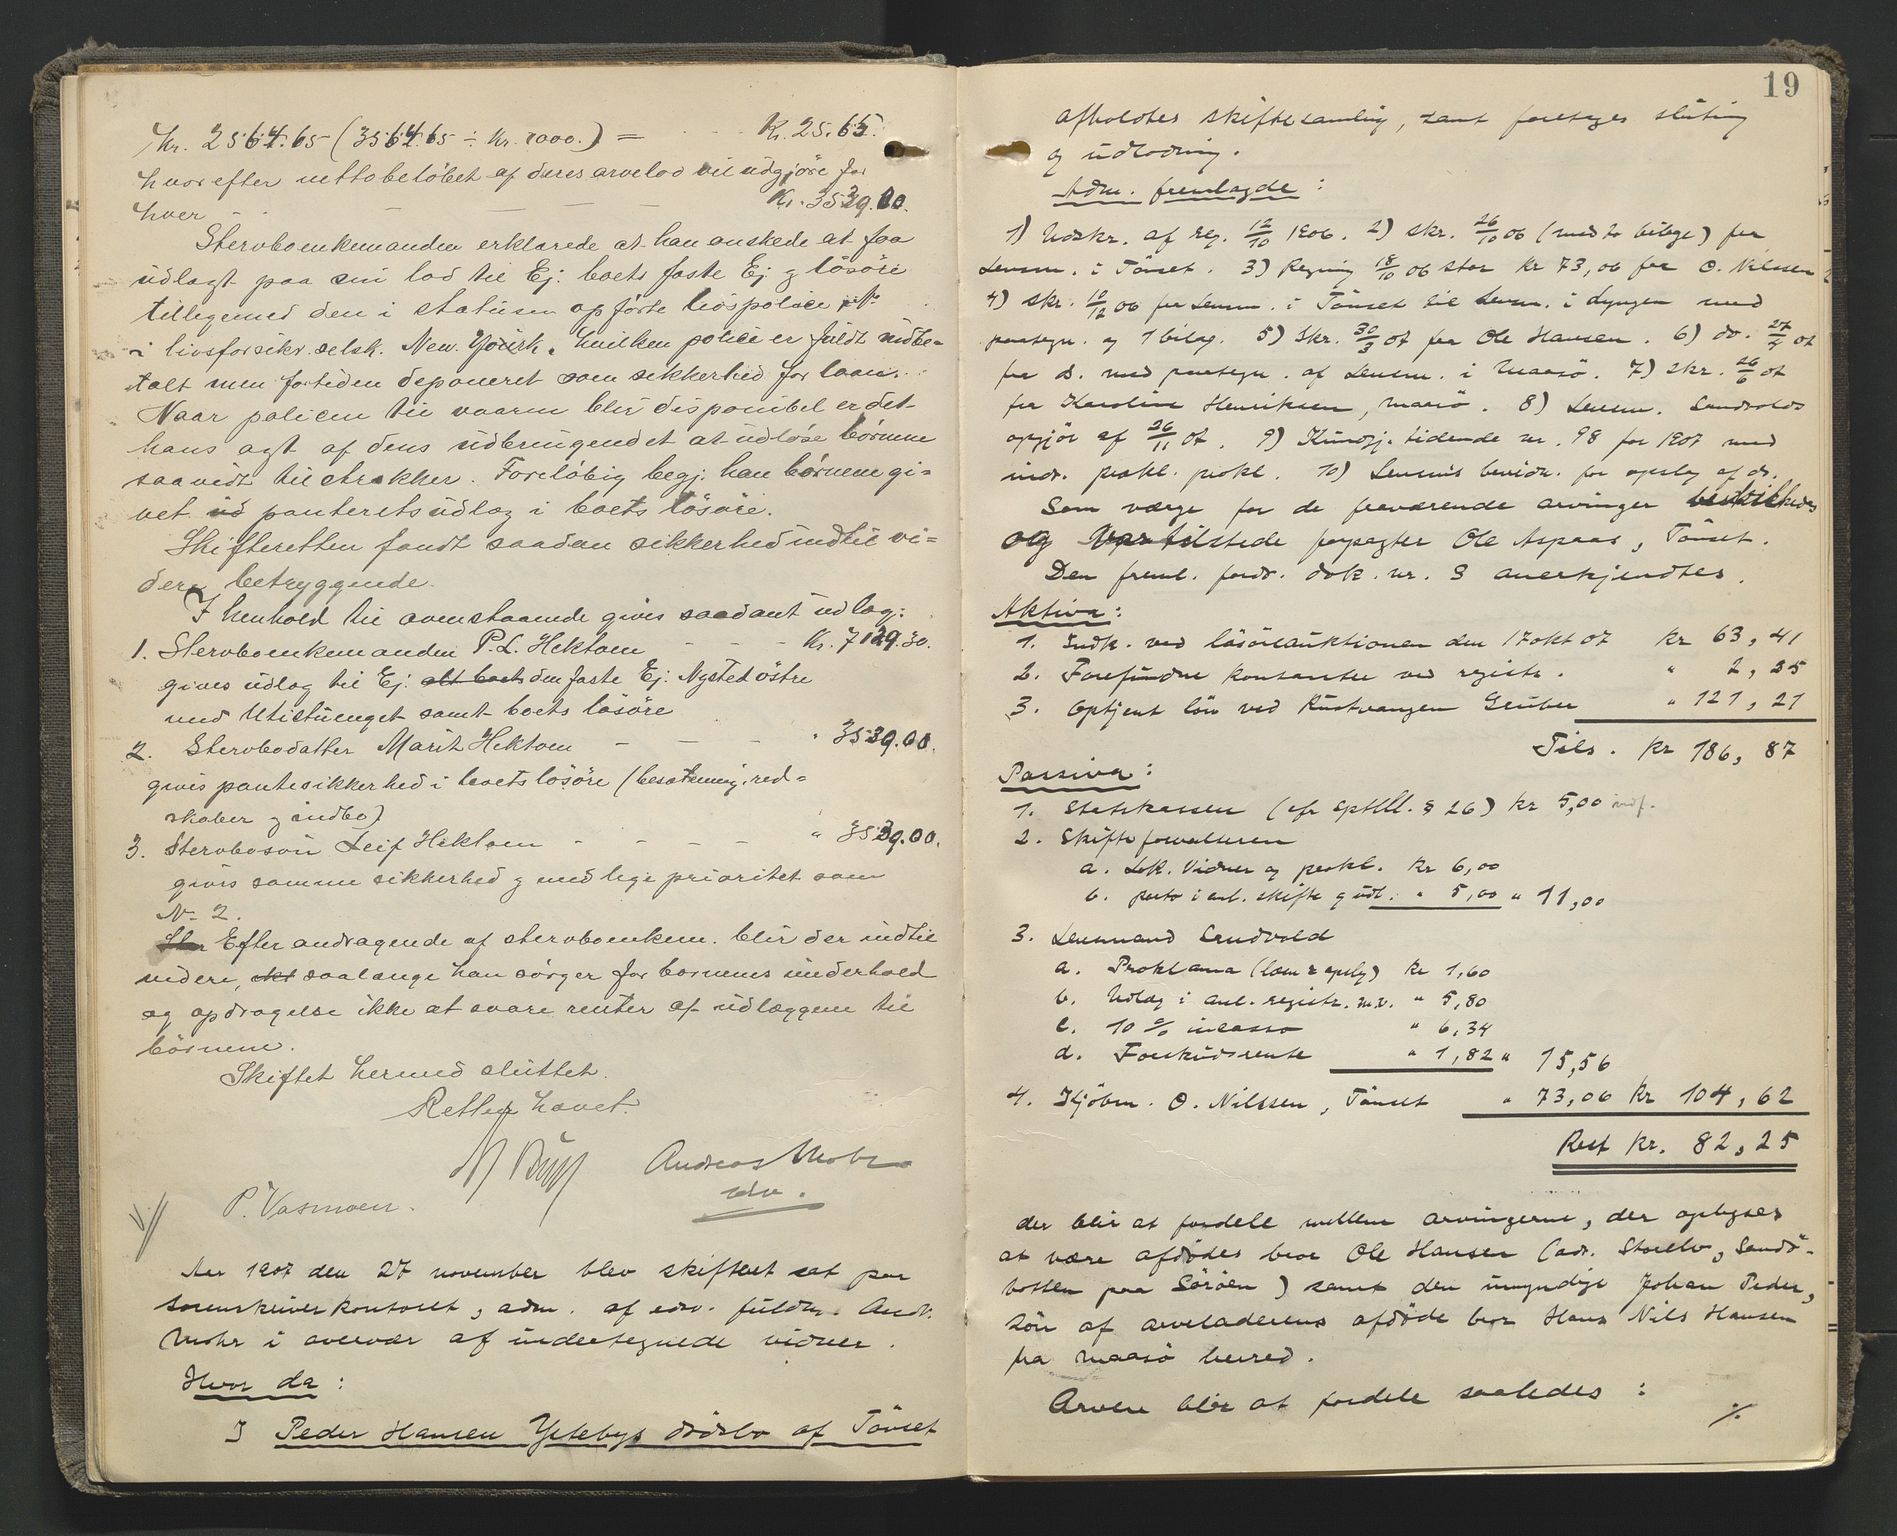 Kr. 2564.65 (3564.65 ÷ Kr. 1000.) = Kr. 25.65.
hvorefter nettobeløbet af deres arvelod vil udgjøre for
hver - - - - Kr. 3539.00.
Stervboenkemanden erklærede at han ønskede at faa
udlagt paa sin lod til Ej. boets faste Ej. g løsøre
tillegemed den i statusen opførte livspolice
i livsforsikr. selsk. New. Yourk, hvilken police er fuldt indbe-
talt men fortiden deponeret som sikkerhed for laan.
Naar policen til vaaren blir disponibel er det
hans agt af dens udbringendet at udløse børnene
saavidt til strækker. Foreløbig begj. han børnene gi-
vet ud panteretsudlæg i boets løsøre.
Skifteretten fandt saadan sikkerhed indtil vi-
dere betryggende.
I henhold til ovenstaaende gives saadant udlæg:
1. Stervboenkemanden P. L. Hektoen - - - Kr. 7129.30.
gives udlæg til Ej. alt boets den faste Ej. Nysted østre
med Utistuenget samt boets løsøre
2. Stervbodatter Marit Hektoen - - - " 3539.00.
gives pantesikkerhed i boets løsøre (besætning, red-
skaber g indbo)
3. Stervbosøn Leif Hektoen - - - - " 3539.00.
gives samme sikkerhed g med lige prioritet som
No 2.
Ster Efter andragende af stervboenkem. blir der indtil
videre, saalænge han sørger for børnenes underhold
og opdragelse ikke at svare renter af udlæggene til
børnene.
Skiftet hermed sluttet.
Retten hævet.
Andreas Mohr
edv.
P. Vasmoen.
Aar 1907 den 27 november blev skifteret sat paa
sorenskriverkontoret, adm. af edv. fuldm. Andr.
Mohr i overvær af undertegnede vidner.
Hvor da:
I Peder Hansen Ytebys dødsbo af Tönset
19
afholdtes skiftesamling, samt foretages slutning
og udlodning.
Adm. fremlagde:
1) Udskr. af reg. 12/10 1906. 2) skr. 26/10 06 (med to bilage) fra
Lensm. i Tönset. 3) Regning 18/10 06 stor kr 73,06 fra O. Nilssen
4) skr. 10/12 06 fra Lensm. i Tönset til Lensm. i Lyngen med
paategn. og 1 bilag. 5) Skr. 30/3 07 fra Ole Hansen. 6) do. 27/4 07
fra d. med paategn. af Lensm. i Maasö. 7) skr. 26/6 07
fra Karoline Henriksen, Maasö. 8) Lensm. Sandvolds
opgjör af 26/11 07. 9) Kundgj. tidende nr. 98 for 1907 med
indr. prokl. prokl. 10) Lensm's bevidn. for opslag af do.
Som værge for de fraværende arvinger beskikkedes
og Var tilstede forpagter Ole Aspaas, Tönset.
Den freml. fordr. dok. nr. 3 anerkjendtes.
Aktiva:
1. Indk. ved lösöreauktionen den 17 okt 07 kr 63,41
2. Forefundne kontanter ved registr. " 2,25
3. Optjent lön ved Rustvangen Gruber " 121,21
Tils. kr 186,87
Passiva:
1. Statskassen (cfr sptll. § 26) kr 5,00 indf.
2. Skifteforvalteren
a. Dok. Vidner og prokl. kr 6,00
b. porto i anl. skifte g udl. " 5,00 " 11,00
3. Lensmand Sandvold
a. Proklama (læsn & opslg) kr 1,60
b. Udlæg i anl. registr. m.v. " 5,80
c. 10 % incasso " 6,34
d. Forskudsrente " 1,82 " 15,56
4. Kjöbm. O. Nilssen, Tönset " 73,06 kr 104,62
Rest kr. 82,25
der blir at fordele mellem arvingerne, der oplyses
at være afdödes bror Ole Hansen (adr. Storelv, Sandö-
botten paa Söröen) samt den umyndige Johan Peder,
sön af arveladerens afdöde bror Hans Nils Hansen
fra Maasö herred.
Arven blir at fordele saaledes:
./.